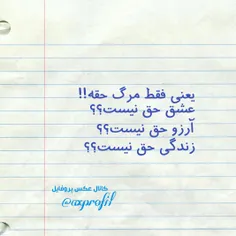 یعنی فقط مرگ حقه!!
عشق حق نیست؟؟
آرزو حق نیست؟؟
زندگی حق نیست؟؟
کانال عکس پروفایل
@axprofil